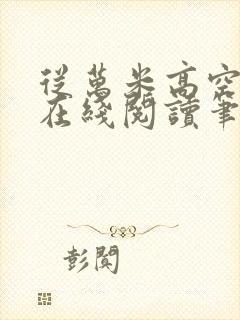 從萬米高空
在綫閱讀筆
彭闃